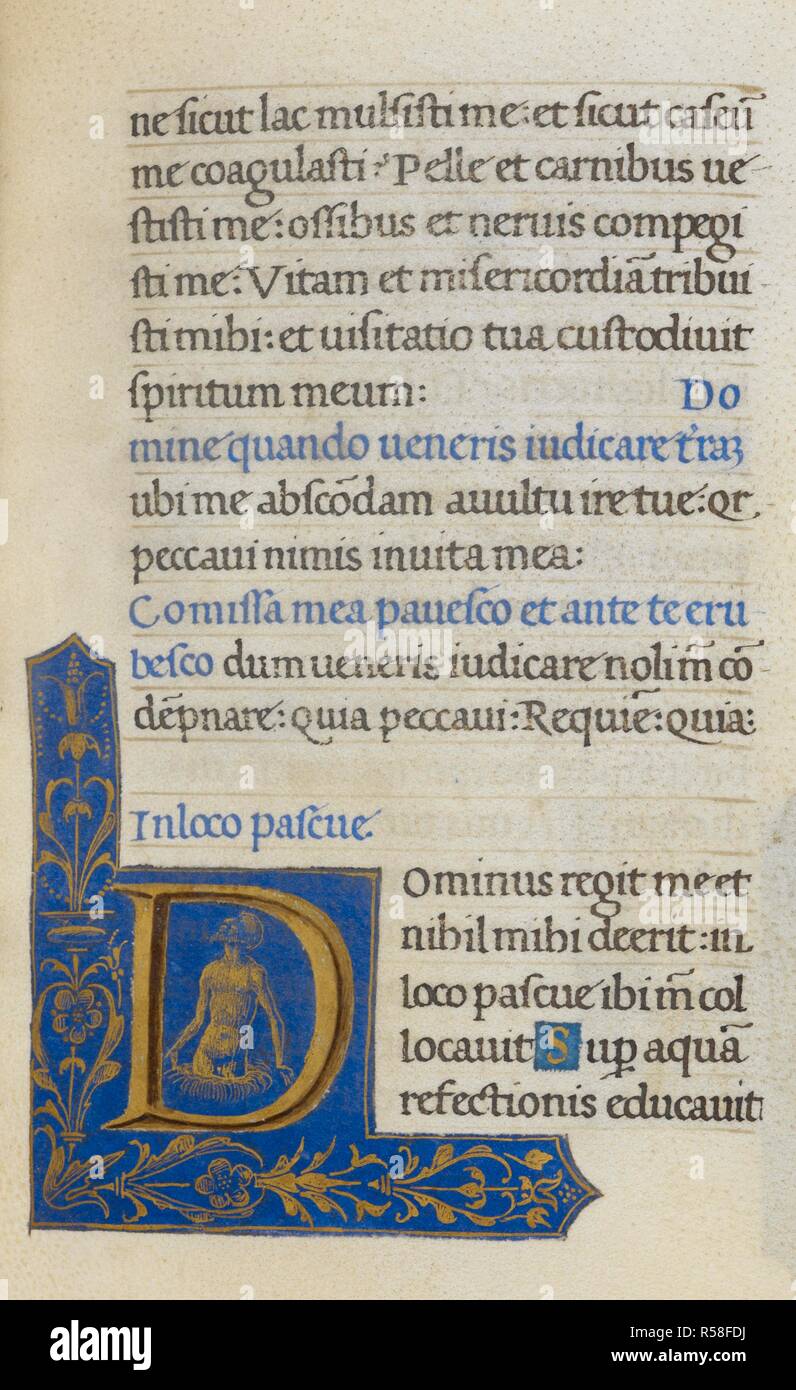 ne sicut lac mulsisti me: et sicut caseū
me coagulasti: Pelle et carnibus ue
stisti me: ossibus et neruis compegi
sti me: Vitam et misericordiā tribui
sti mihi: et uisitatio tua custodiuit
spiritum meum: Do
mine quando ueneris iudicare
ubi me abscōdam a uultu ire tue: qr
peccaui nimis in uita mea:
Comissa mea pauesco et ante te eru
besco dum ueneris iudicare noli m̄ cō
dēpnare: quia peccaui: Requiē: quia:
In loco pascue.
Dominus regit me et
nihil mihi deerit: in
loco pascue ibi m̄ col
locauit Sup aquā
refectionis educauit
alamy stock photo
a
a
a
a
alamy
Image ID: R58FDJ
www.alamy.com